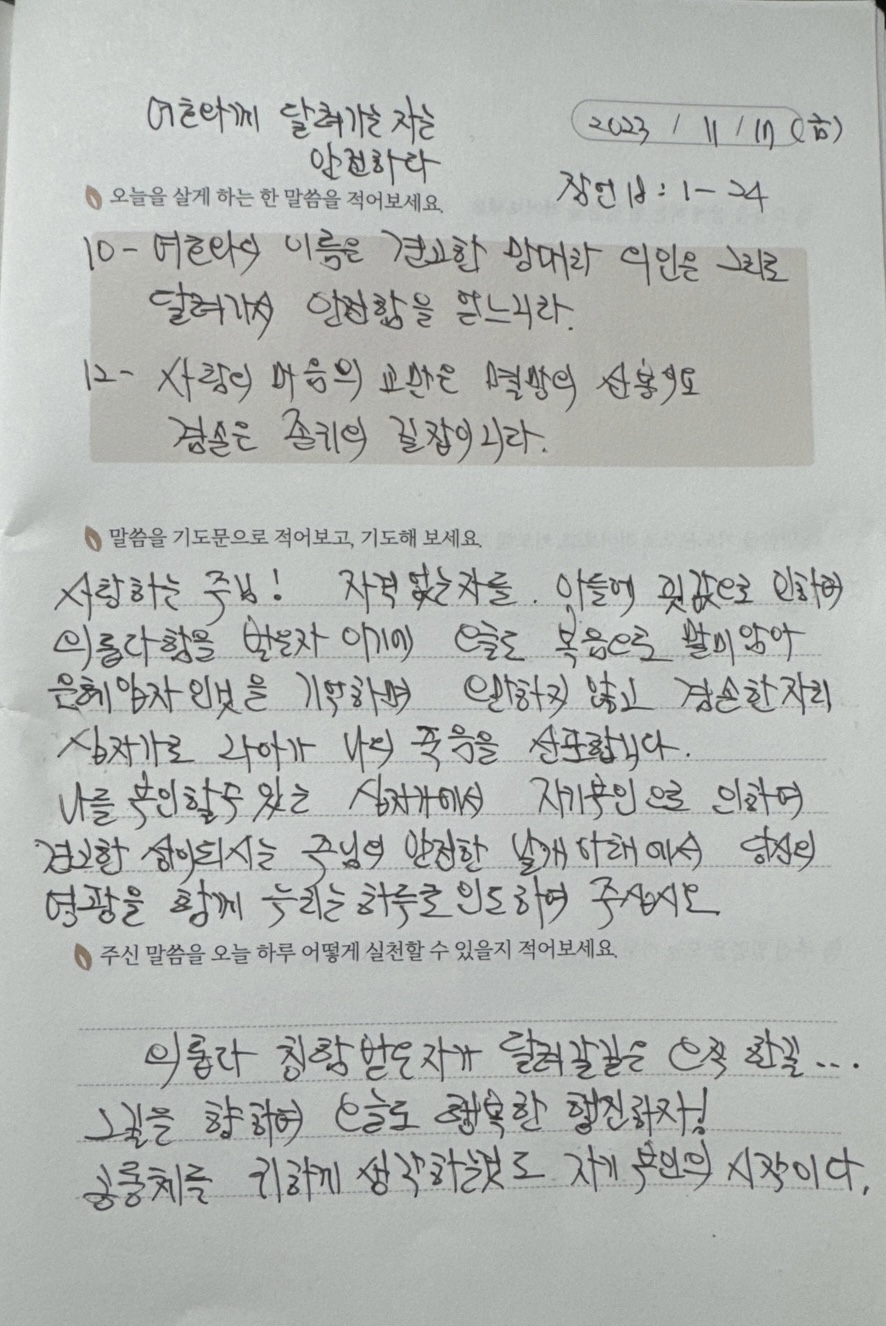 여호와께 달려가는 자는
안전하라
2023 / 11 / 17 (금)
잠언 18 : 1 - 24
오늘을 살게 하는 한 말씀을 적어보세요.
10 - 여호와의 이름은 견고한 망대라 의인은 그리로
달려가서 안전함을 얻느니라.
12 - 사람의 마음의 교만은 멸망의 선봉이요
겸손은 존귀의 길잡이니라.
말씀을 기도문으로 적어보고, 기도해 보세요.
사랑하는 주님! 자격 없는 자를 아들에 핏값으로 인하여
의롭다함을 받은자 이기에 오늘도 복음으로 말미암아
은혜입자 인것을 기억하며 악하지 않고 겸손한 자리
십자가로 나아가 나의 죽음을 선포합니다.
나를 부인할수 있는 십자가에서 자기부인으로 의하여
견고한 성이되시는 주님의 안전한 날개 아래에서 당신의
영광을 함께 누리는 하루로 인도하여 주십시오
주신 말씀을 오늘 하루 어떻게 실천할 수 있을지 적어보세요.
의롭다 칭함받은자가 달려갈길은 오직 한길...
그길을 향하여 오늘도 행복한 행진하자!
공동체를 귀하게 생각하는것도 자기 부인의 시작이다.